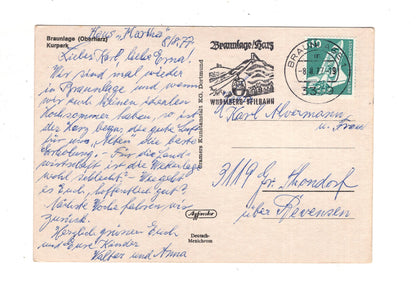 Braunlage (Oberharz)
Kurpark
Haus "Martha"
8/8.77
Lieber Karl, liebe Erna!
Wir sind mal wieder
in Braunlage und wenn
wir auch keinen idealen
Hochsommer haben, so ist
der Harz began, die gute Luft
für uns die beste
Erholung. - Für die Land-
wirtschaft ist die Wetterlage
wohl schlecht? - Wie geht
es Euch, hoffentlich gut?
Nächste Woche fahren wir
zurück.
Herzlich grüssen Euch
und Eure Kinder
Walter und Anna
Cramers Kunstanstalt KG, Dortmund
Deutsch-
Mexichrom
Braunlage/Harz
WURMBERG-SEILBAHN
BRAUNLAGE 1
-8.8.77-19
3389
Karl Alvermann
u. Frau
3119 Gr. Thondorf
über Bevensen